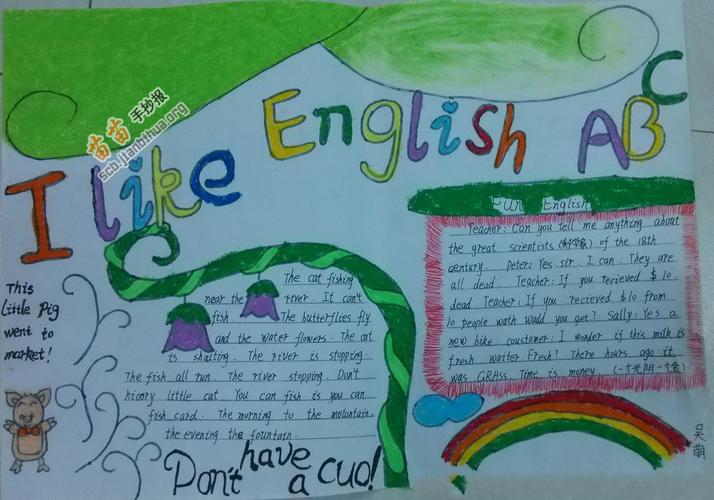 I like English ABC
苗苗手抄报
scb.jianbihua.org
This
little Pig
went to
market!
The cat fishing
near the river. It can't
fish. The butterflies fly
and the water flowers. The cat
is shalting. The river is stopping.
The fish all run. The river stopping. Don't
hicory little cat. You can fish is you can
fish card. The morning to the molontain.
the evening the fountain.
Don't have a cuo!
Fun English
Teacher: Can you tell me anything about
the great scientists (科学家) of the 18th
century. Peter: Yes. sir. I can. They are
all dead. Teacher: If you recieved $10.
dead. Teacher: If you recieved $10 from
10 people wath wodd you get? Sally: Yes a
new bike. coustemer: I wonder if this milk is
fresh waiter. Fresh? There hours ago it
was GRASS Time is money. (一寸光阴一寸金)
吴萌